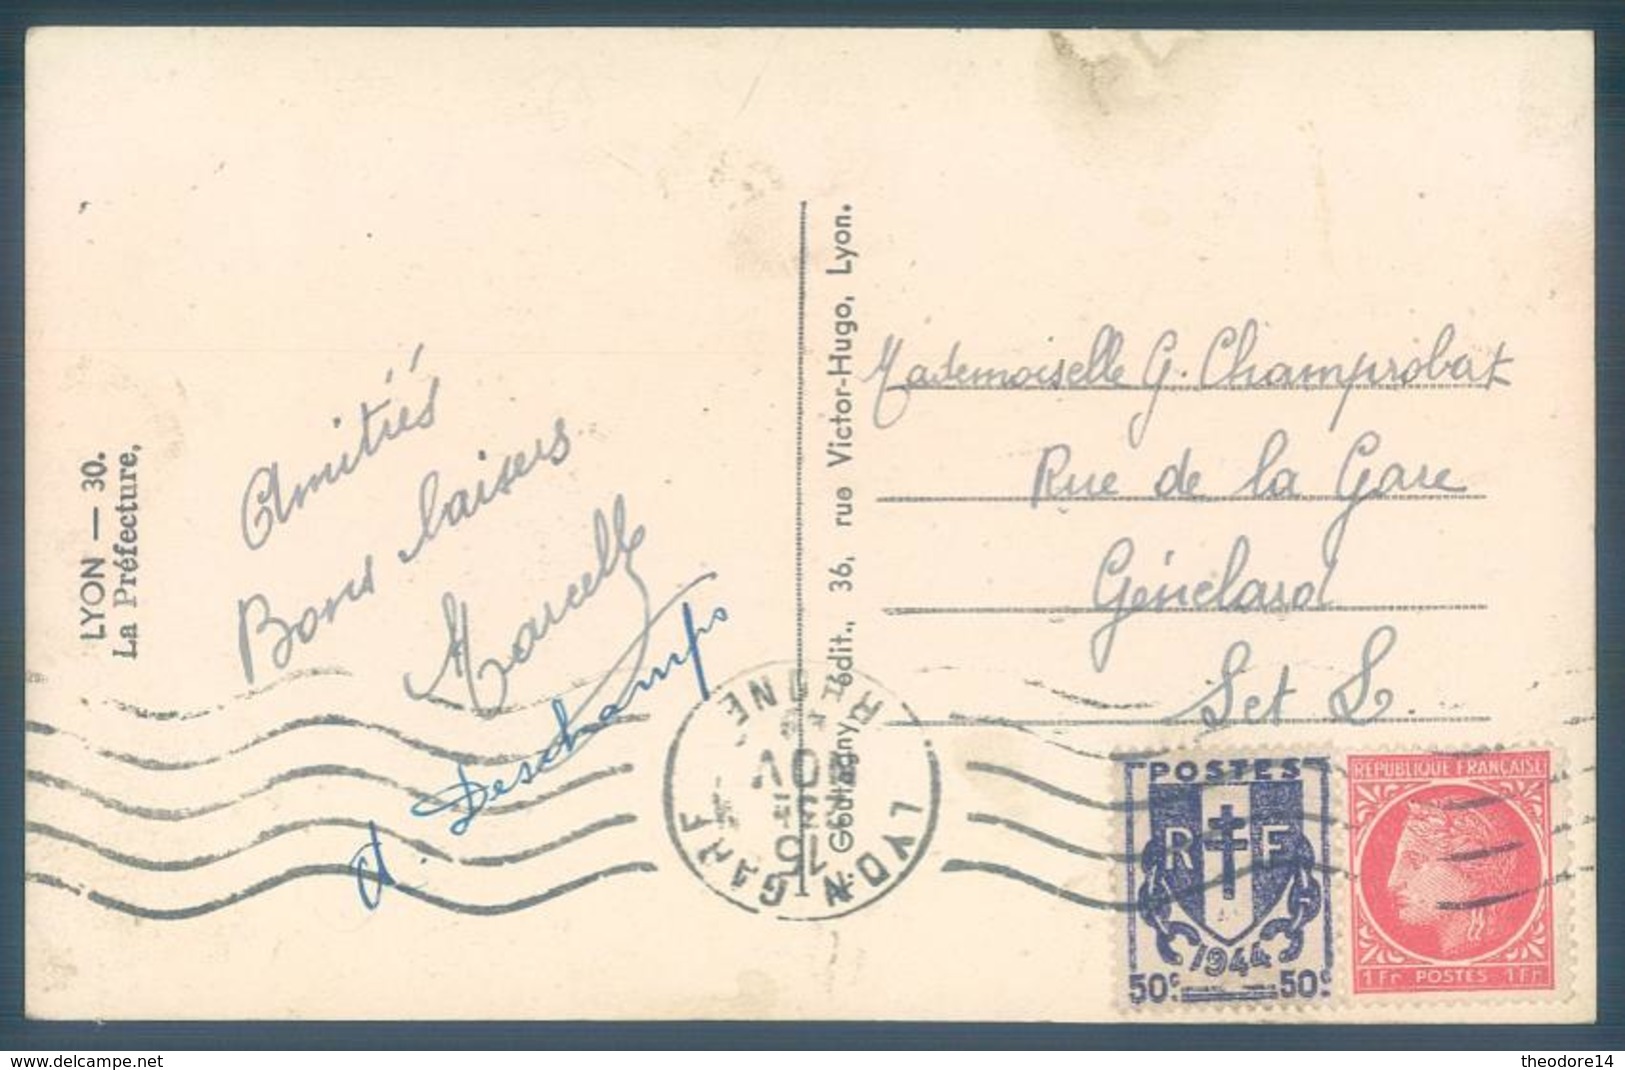 LYON — 30.
La Préfecture,
Amitiés
Bons baisers
Marcelle
A. Deschamps
Goutagny édit., 36, rue Victor-Hugo, Lyon.
Mademoiselle G. Champrobat
Rue de la Gare
Génelard
S et L.
LYON GARE
RHONE
POSTES
R F
1944
50c 50c
REPUBLIQUE FRANÇAISE
1Fr POSTES 1Fr
theodore14
www.delcampe.net